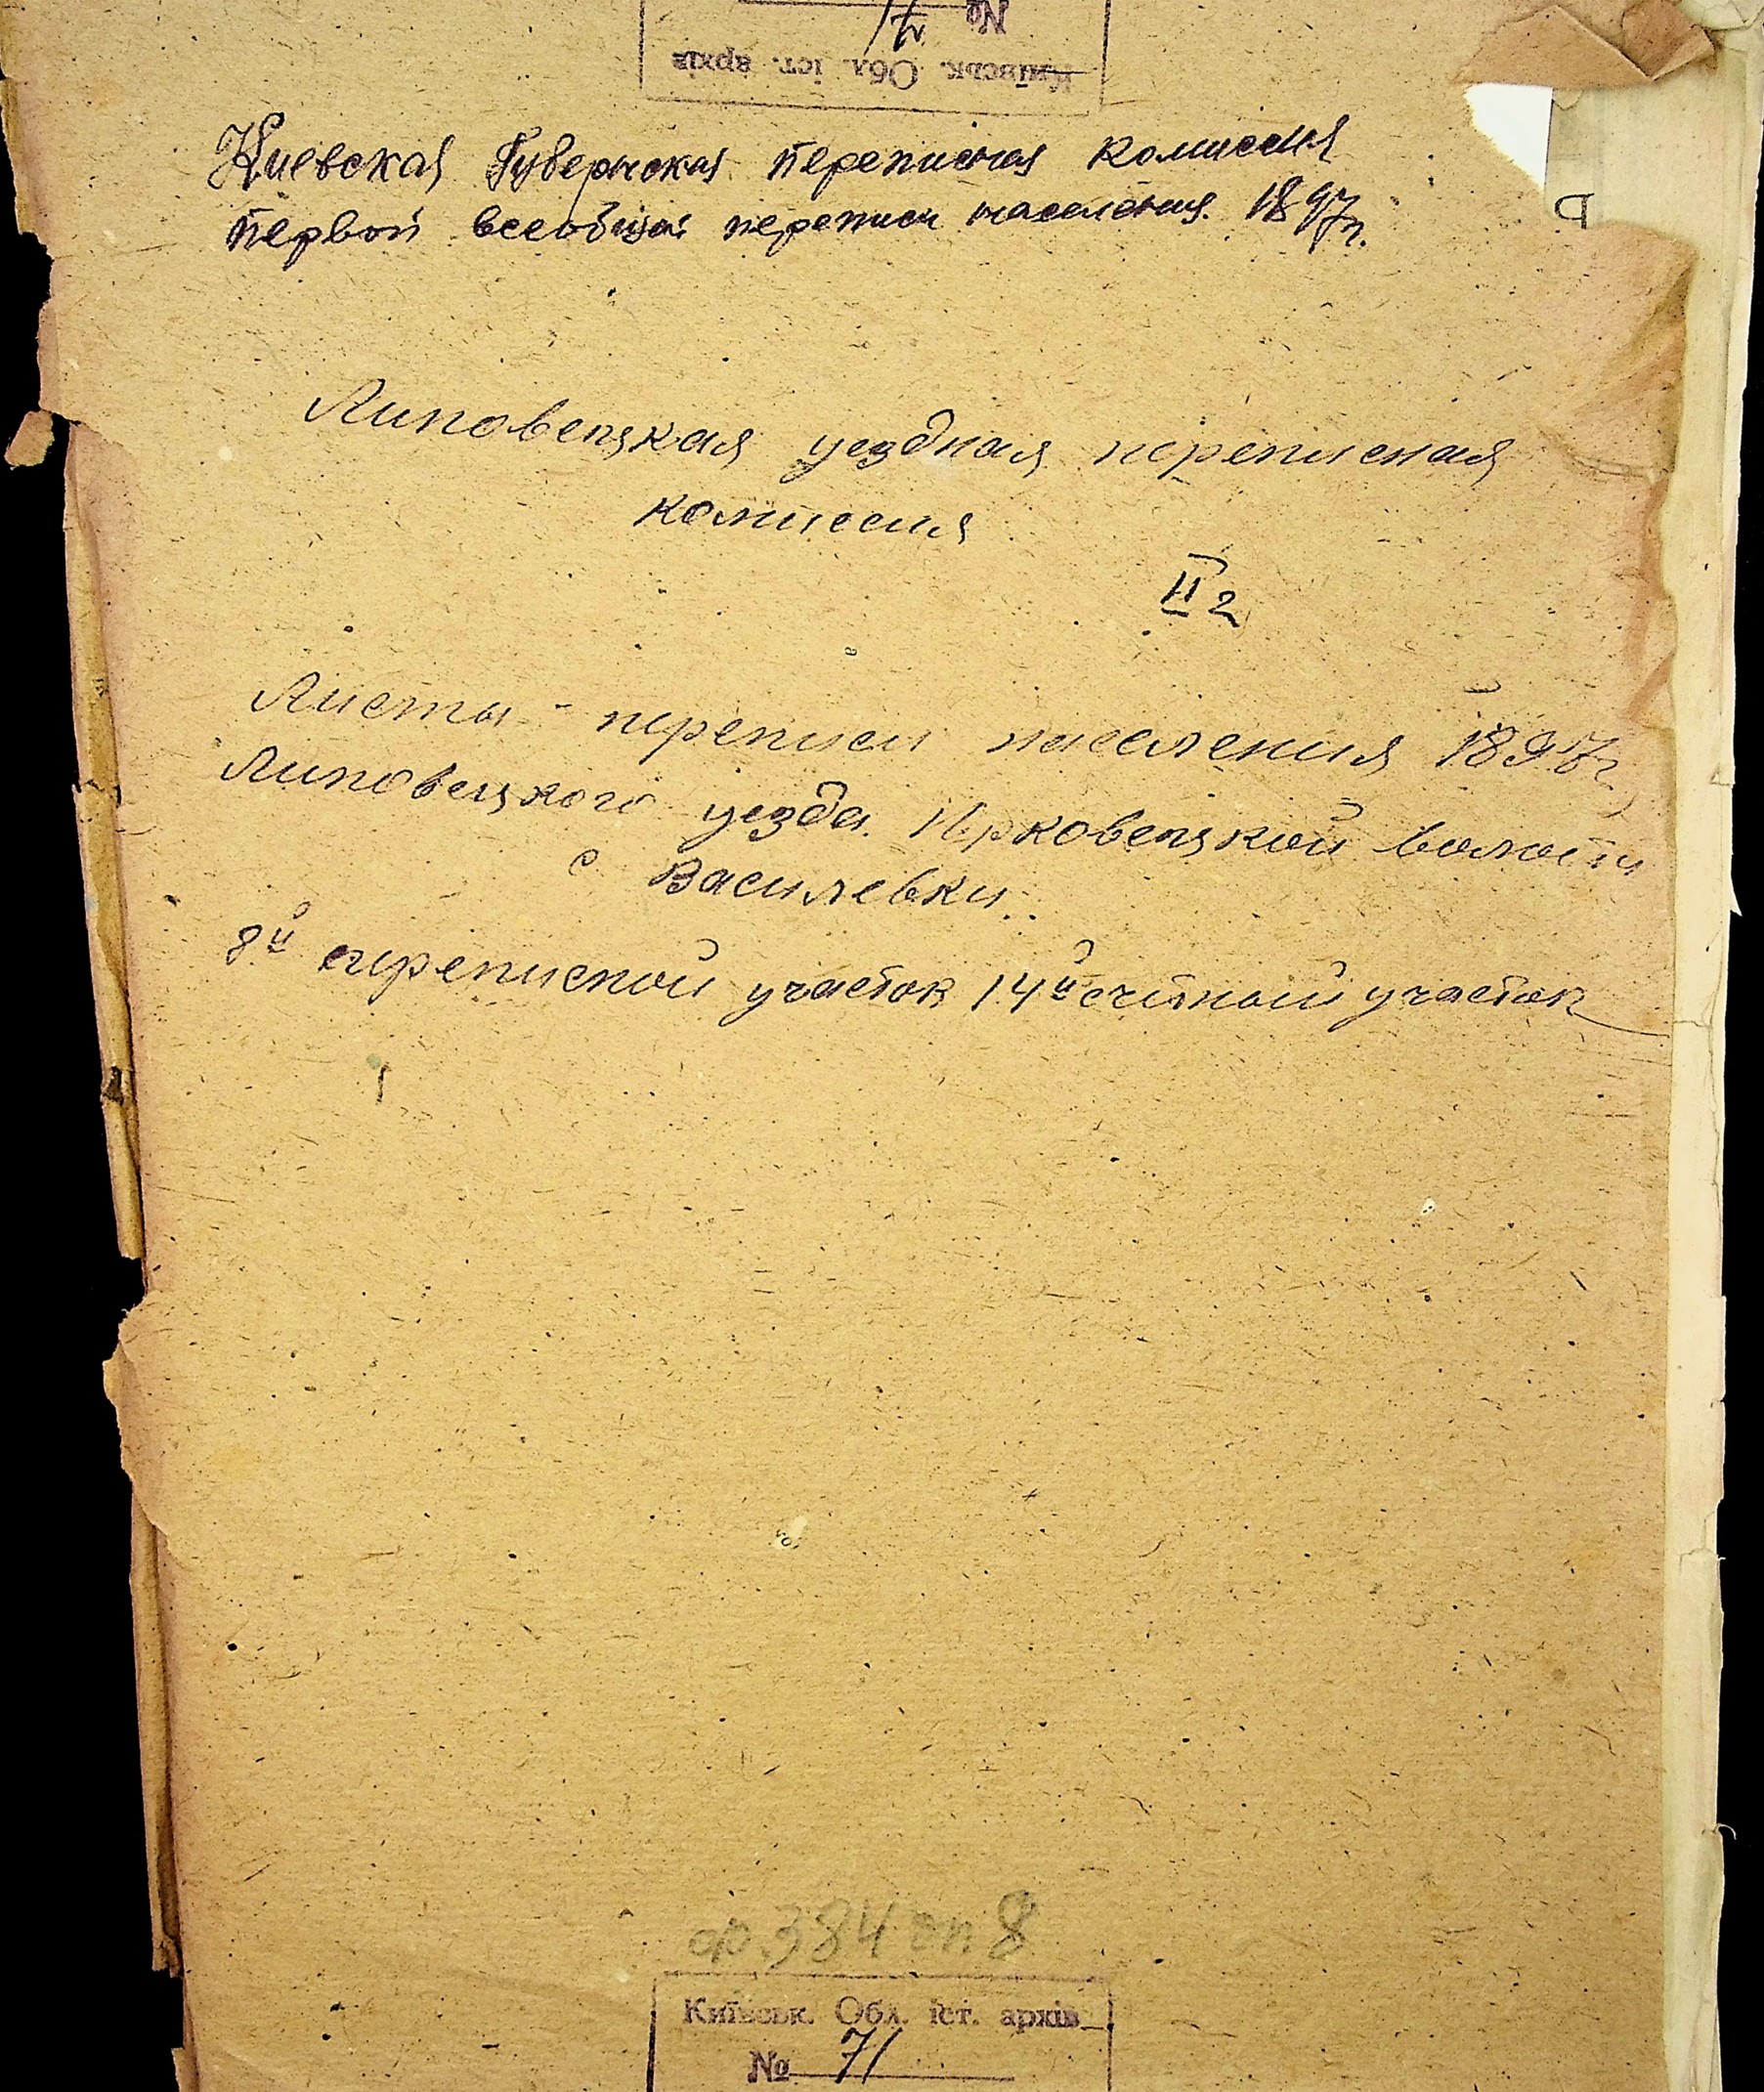 № 71
Київськ. Обл. іст. архів
Киевская Губернская переписная комиссия
первой всеобщей переписи населения. 1897 г.
Липовецкая уездная переписная
комиссия
II 2
Листы переписи населения 1897 г
Липовецкого уезда. Юрковецкой волости
с Василевки.
8й переписной участок 14й счётный участок
ф. 384 оп. 8
Київськ. Обл. іст. архів
№ 71